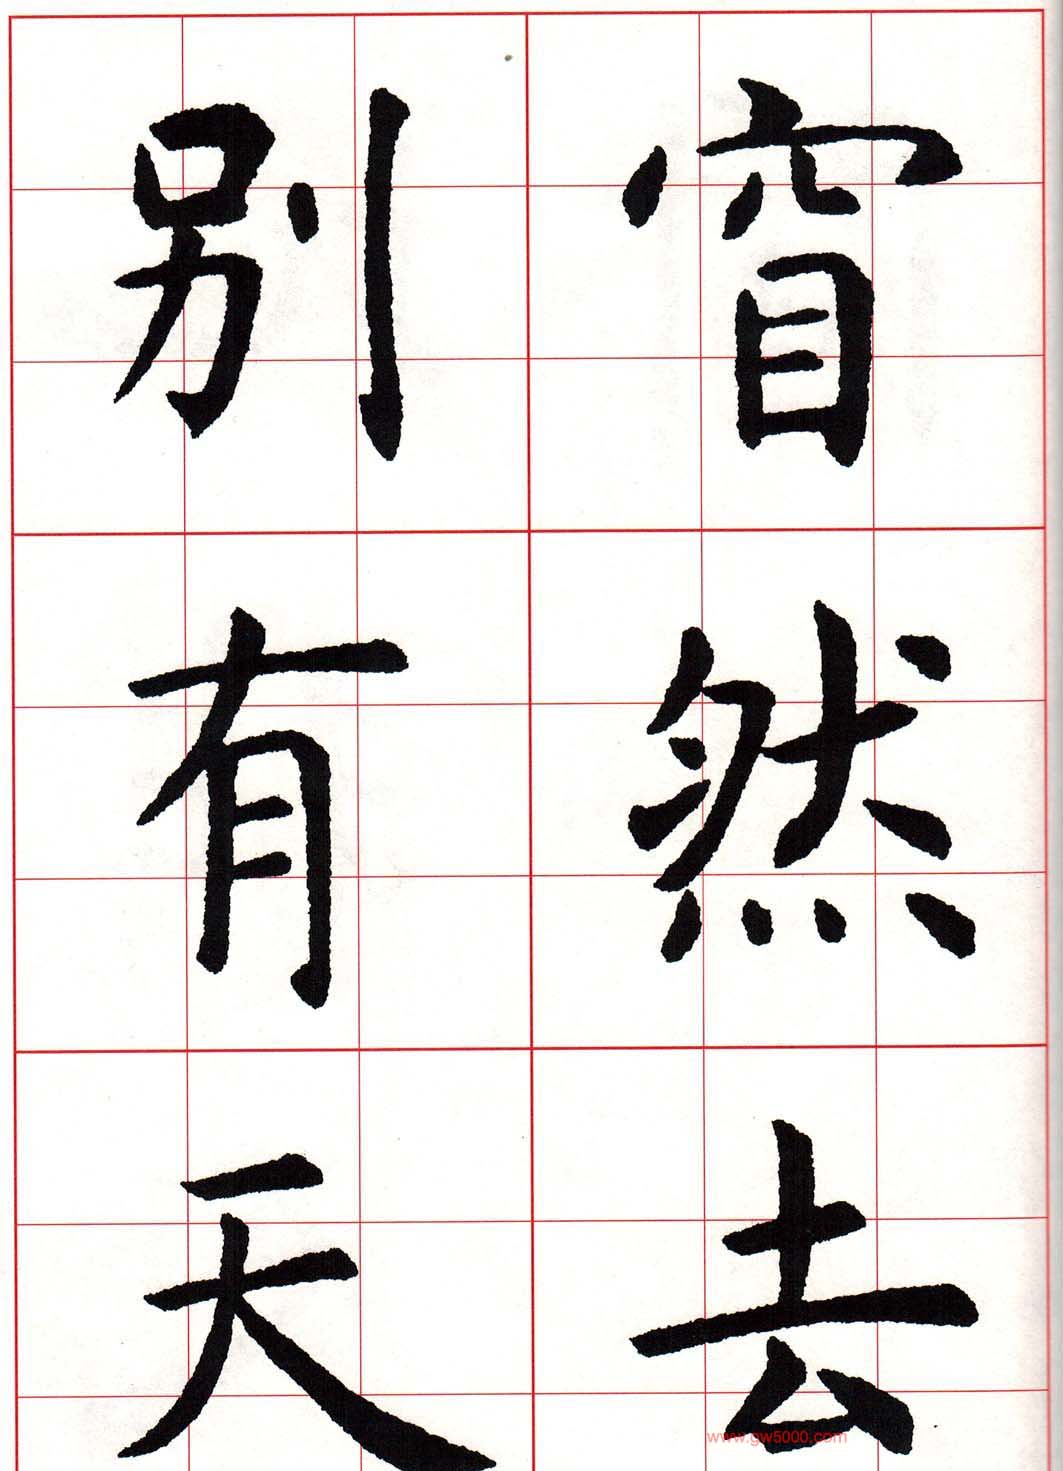 窅然去
别有天
www.gw5000.com